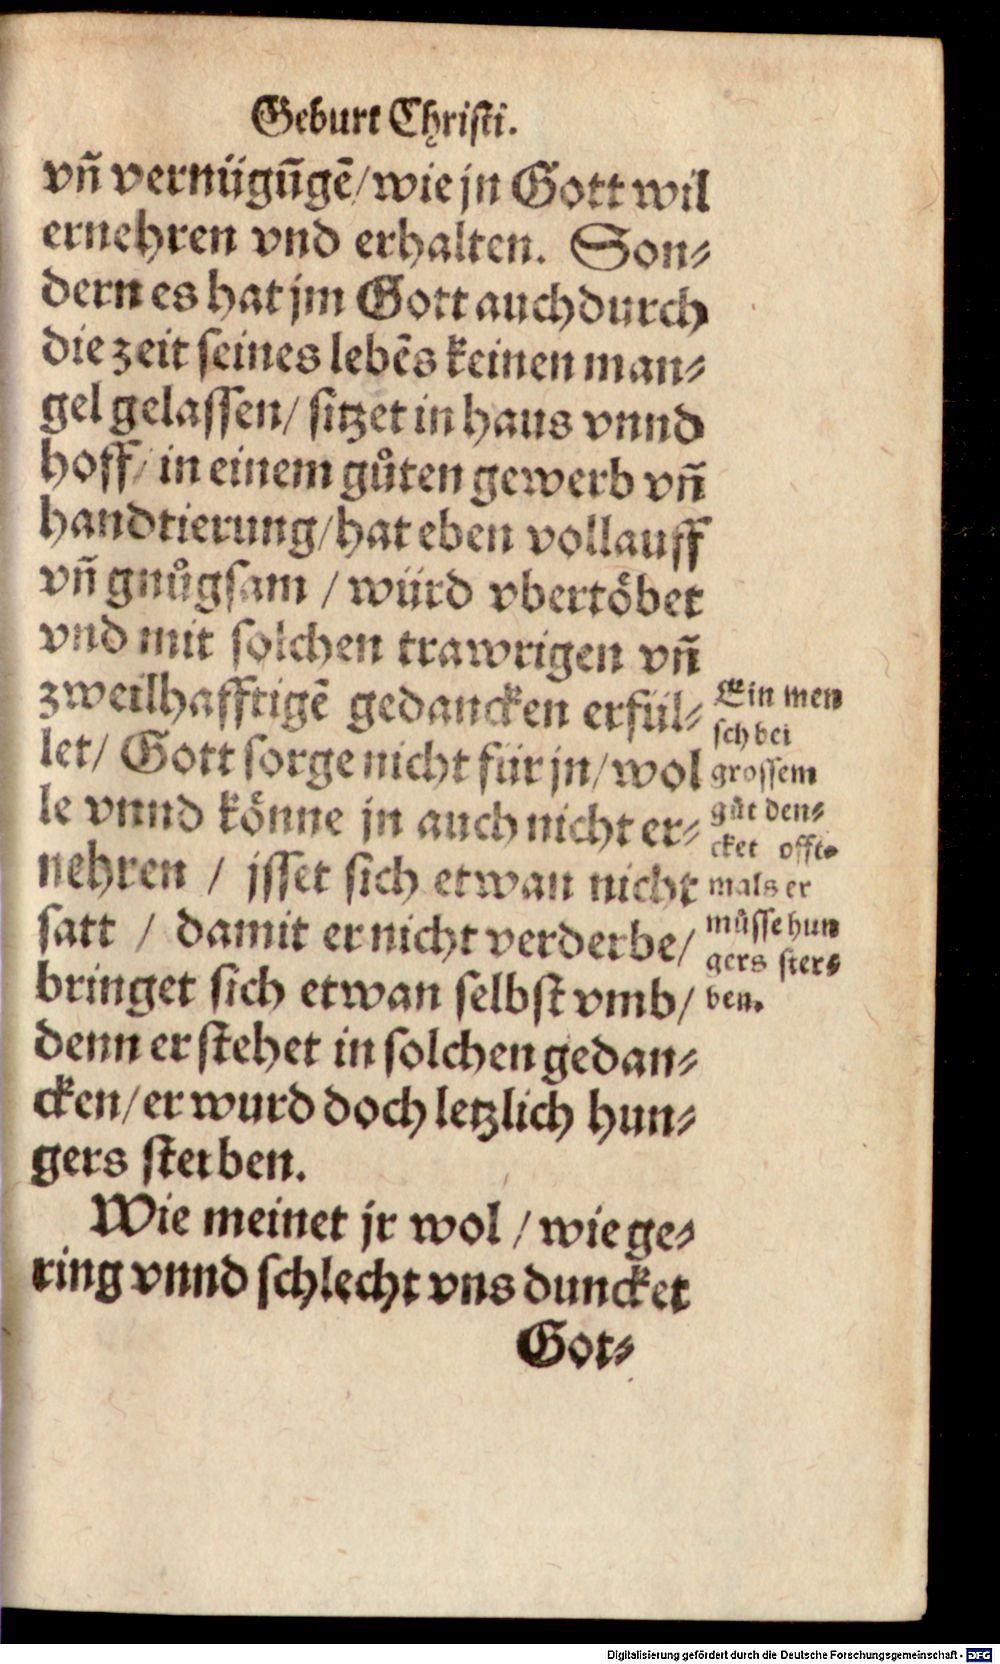 Geburt Christi.
vñ vernügūgē/ wie jn Gott wil
ernehren vnd erhalten. Son⸗
dern es hat jm Gott auch durch
die zeit seines lebēs keinen man⸗
gel gelassen/ sitzet in haus vnnd
hoff/ in einem gůten gewerb vñ
handtierung/ hat eben vollauff
vñ gnůgsam / würd vbertöbet
vnd mit solchen trawrigen vñ
zweilhafftigē gedancken erfül⸗
let/ Gott sorge nicht für jn/ wol
le vnnd könne jn auch nicht er⸗
nehren / jsset sich etwan nicht
satt / damit er nicht verderbe/
bringet sich etwan selbst vmb/
denn er stehet in solchen gedan⸗
cken/ er wurd doch letzlich hun⸗
gers sterben.
Wie meinet jr wol / wie ge⸗
ring vnnd schlecht vns duncket
Got⸗
Ein men
sch bei
grossem
gůt den⸗
cket offt⸗
mals er
můsse hun
gers ster⸗
ben.
Digitalisierung gefördert durch die Deutsche Forschungsgemeinschaft - DFG